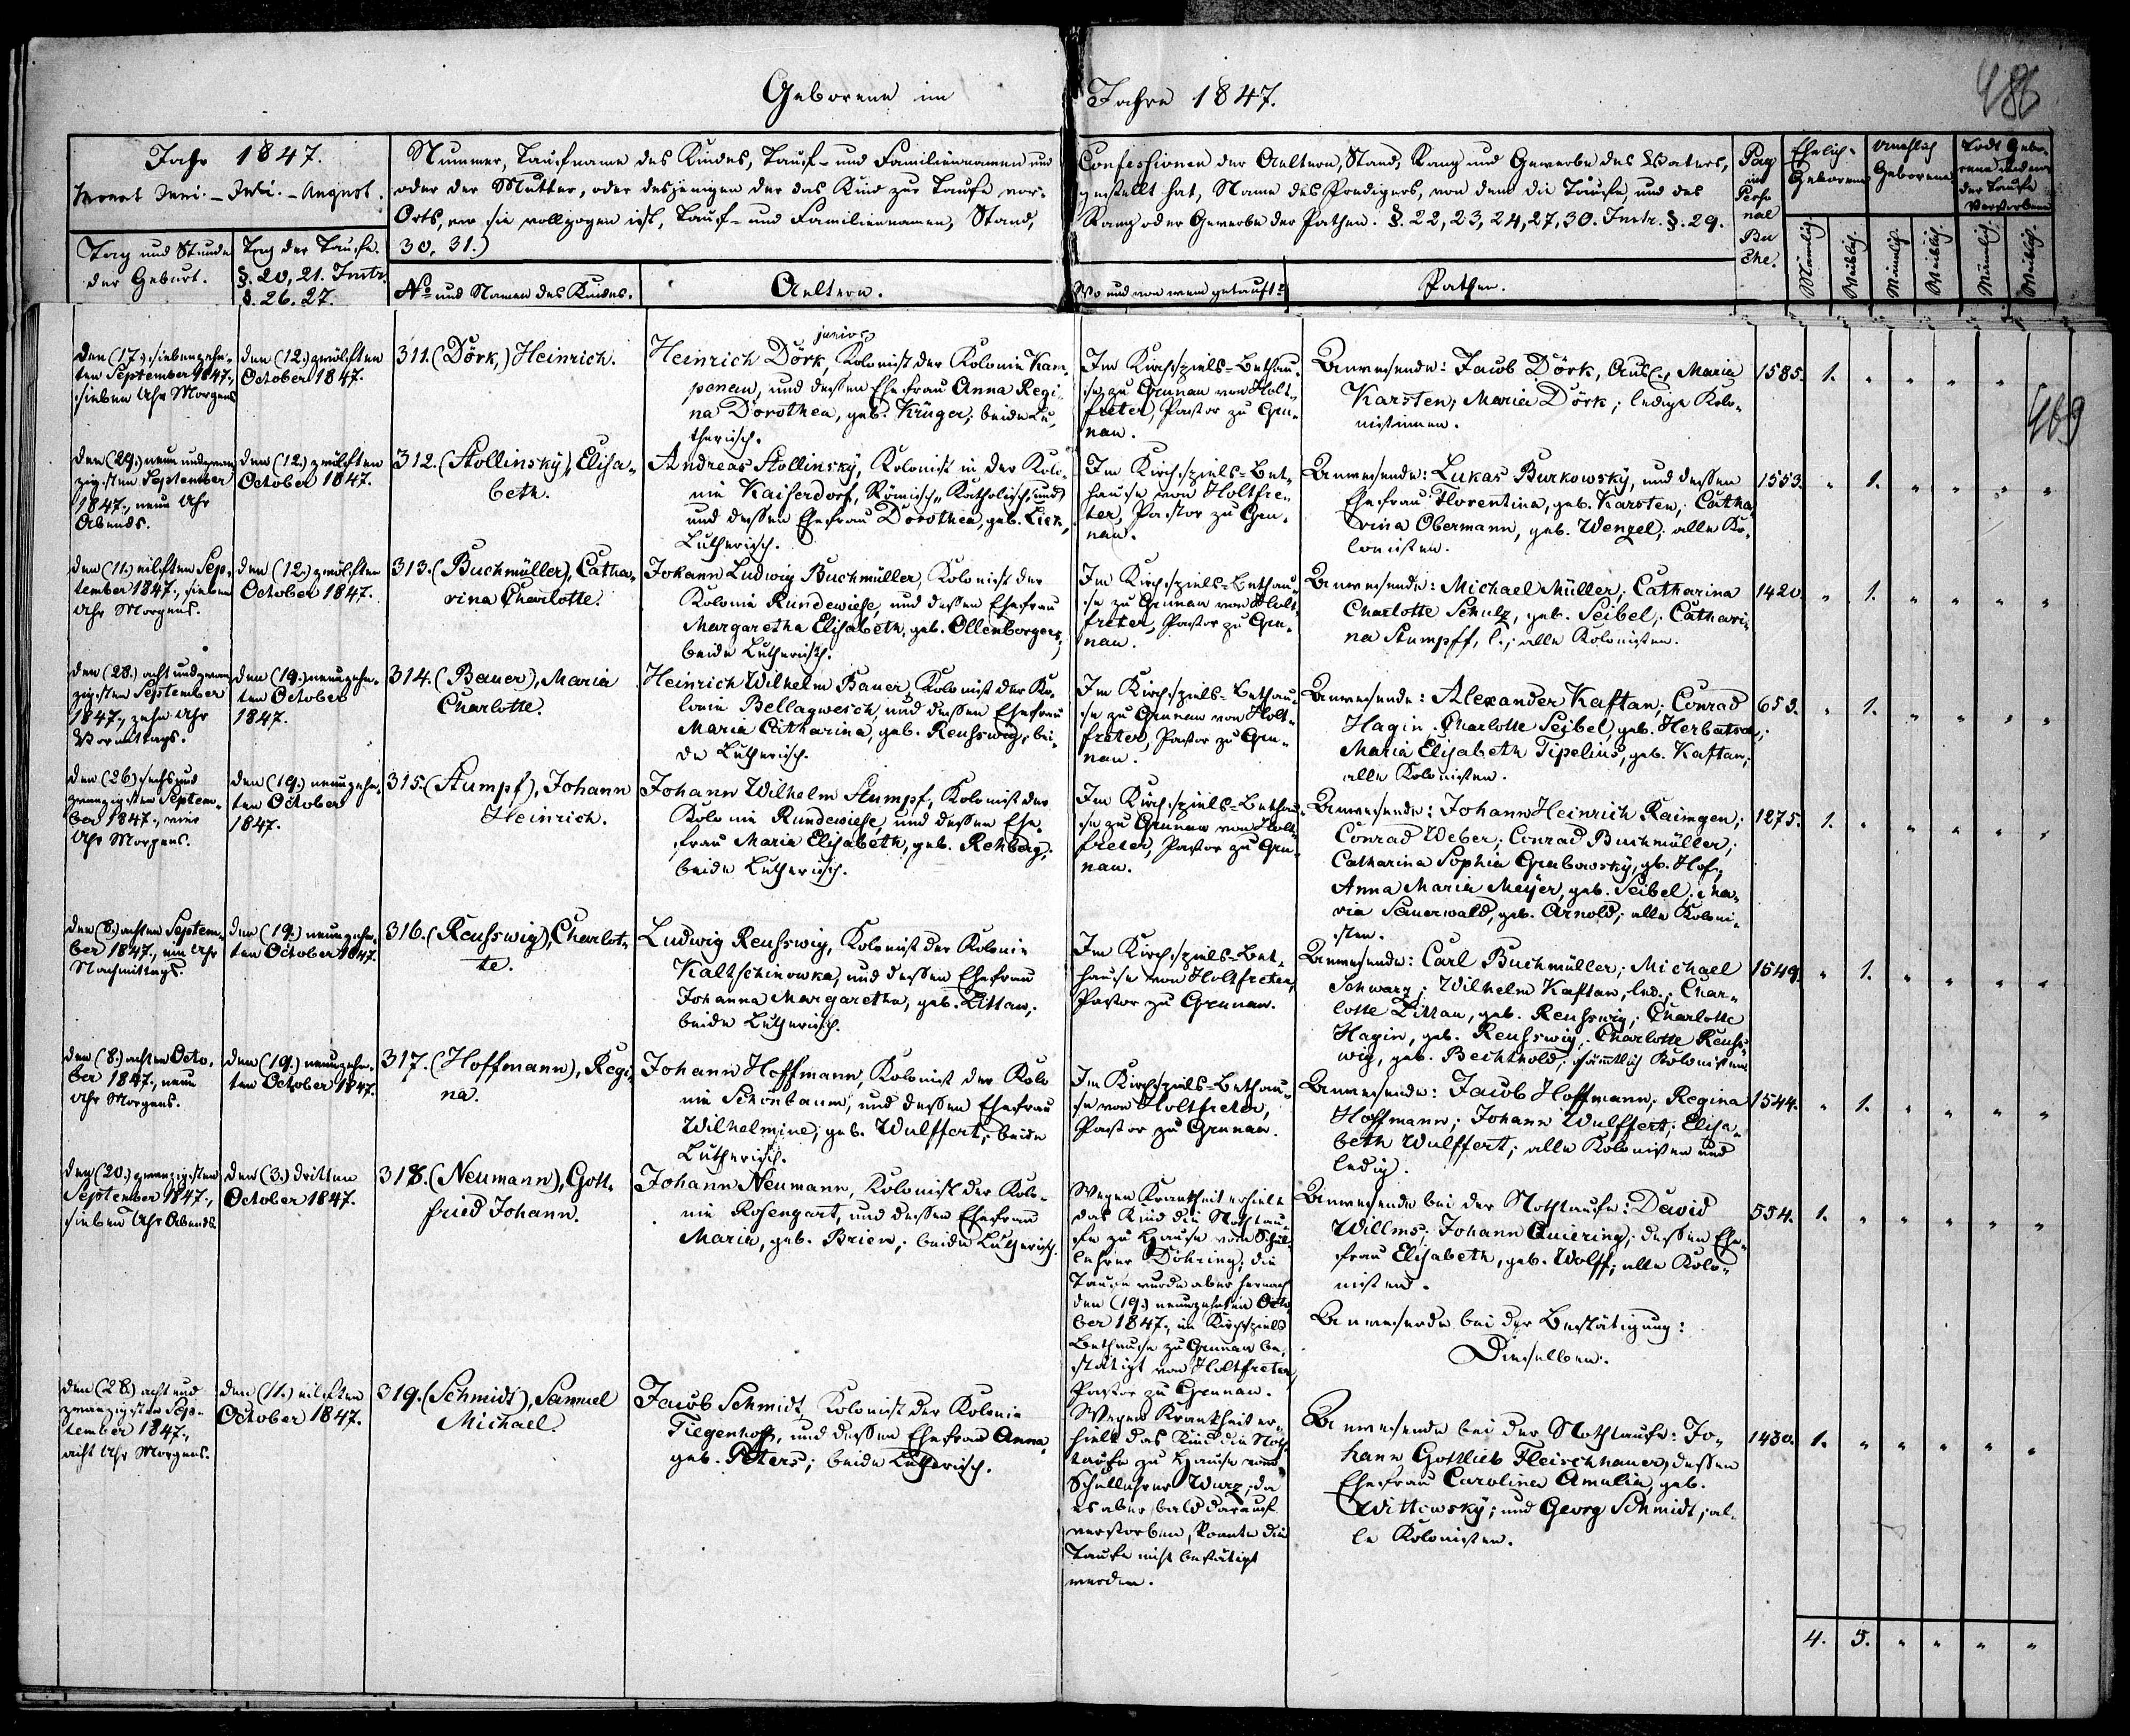 Geborene im Jahre 1847.
486
Jahr 1847.
Monat Juni. - Juli. - August.
Tag und Stunde
der Geburt.
Tag der Taufe.
§. 20, 21. Instr.
§. 26. 27.
Nummer, Taufname des Kindes, Tauf- und Familiennamen und
oder der Mutter, oder desjenigen der das Kind zur Taufe vor-
Orts, wo sie vollzogen ist, Tauf- und Familiennamen, Stand,
30, 31.)
No und Namen des Kindes.
Aeltern.
Confessionen der Aeltern, Stand, Rang und Gewerbe des Vaters,
gestellt hat, Name des Predigers, von dem die Taufe, und des
Rang oder Gewerbe der Pathen. §. 22, 23, 24, 27, 30. Instr. §. 29.
Wo und von wem getauft?
Pathen.
Pag
im
Perso
nal
Bu
che.
Ehelich
Geborene
Unehlich
Geborene
Todt Gebo-
rene und vor
der Taufe
Verstorbene
Männlich.
Weiblich.
Männlich.
Weiblich.
Männlich.
Weiblich.
den (17.) siebenzehn-
ten September 1847.,
sieben Uhr Morgens
den (12.) zwölften
October 1847.
311. (Dörk,) Heinrich.
junior
Heinrich Dörk, Kolonist der Kolonie Kam-
penau, und dessen Ehefrau Anna Regi-
na Dorothea, geb. Krüger; beide Lu-
therisch.
Im Kirchspiels-Bethau-
se zu Grunau von Holt-
freter, Pastor zu Gru-
nau.
Anwesende: Jacob Dörk, Maria
Karsten; Maria Dörk; ledige Kolo-
nistinnen.
1585. 1. " " " " "
469
den (29.) neun und zwan-
zigsten September
1847., neun Uhr
Abends.
den (12.) zwölften
October 1847.
312. (Stollinsky), Elisa-
beth.
Andreas Stollinsky, Kolonist in der Kolo-
nie Kaiserdorf, Römisch-Katholisch, und
und dessen Ehefrau Dorothea, geb. Liek,
Lutherisch.
Im Kirchspiels-Bet-
hause von Holtfre-
ter, Pastor zu Gru-
nau.
Anwesende: Lukas Burkowsky, und dessen
Ehefrau Florentina, geb. Karsten; Catha-
rina Obermann, geb. Wenzel; alle Ko-
lonisten.
1553. " 1. " " " "
den (11.) eilften Sep-
tember 1847., sieben
Uhr Morgens.
den (12.) zwölften
October 1847.
313. (Buchmüller), Catha-
rina Charlotte.
Johann Ludwig Buchmüller, Kolonist der
Kolonie Rundewiese, und dessen Ehefrau
Margaretha Elisabeth, geb. Ollenborger;
beide Lutherisch.
Im Kirchspiels-Bethau-
se zu Grunau von Holt-
freter, Pastor zu Gru-
nau.
Anwesende: Michael Müller; Catharina
Charlotte Schulz, geb. Seibel; Cathari-
na Stumpff, l.; alle Kolonisten.
1420. " 1. " " " "
den (28.) acht und zwan-
zigsten September
1847., zehn Uhr
Vormittags.
den (19.) neunzehn-
ten October
1847.
314. (Bauer), Maria
Charlotte.
Heinrich Wilhelm Bauer, Kolonist der Ko-
lonie Bellagwesch, und dessen Ehefrau
Maria Catharina, geb. Reußwig; bei-
de Lutherisch.
Im Kirchspiels-Bethau-
se zu Grunau von Holt-
freter, Pastor zu Gru-
nau.
Anwesende: Alexander Kaftan; Conrad
Hagin; Charlotte Seibel, geb.
Maria Elisabeth Tipelius, geb. Kaftan;
alle Kolonisten.
653. " 1. " " " "
den (26.) sechs und
zwanzigsten Septem-
ber 1847., vier
Uhr Morgens.
den (19.) neunzehn-
ten October
1847.
315. (Stumpf), Johann
Heinrich.
Johann Wilhelm Stumpf, Kolonist der
Kolonie Rundewiese, und dessen Ehe-
frau Maria Elisabeth, geb. Rehberg;
beide Lutherisch.
Im Kirchspiels-Bethau-
se zu Grunau von Holt-
freter, Pastor zu Gru-
nau.
Anwesende: Johann Heinrich Raimgen;
Conrad Weber; Conrad Buchmüller;
Catharina Sophia Grabowsky, gb. Hof;
Anna Maria Meyer, geb. Seibel; Ma-
ria Sauerwald, geb. Arnold; alle Koloni-
sten.
1275. 1. " " " " "
den (8.) achten Septem-
ber 1847., ein Uhr
Nachmittags.
den (19.) neunzehn-
ten October 1847.
316. (Reußwig), Charlot-
te.
Ludwig Reußwig, Kolonist der Kolonie
Kaltschinowka, und dessen Ehefrau
Johanna Margaretha, geb. Littau;
beide Lutherisch.
Im Kirchspiels-Bet-
hause von Holtfreter,
Pastor zu Grunau.
Anwesende: Carl Buchmüller; Michael
Schwarz; Wilhelm Kaftan, led.; Char-
lotte Littau, geb. Reußwig; Charlotte
Hagin, geb. Reußwig; Charlotte Reuß-
wig, geb. Bechthold; sämmtlich Kolonisten.
1549. " 1. " " " "
den (8.) achten Octo-
ber 1847., neun
Uhr Morgens.
den (19.) neunzehn-
ten October 1847.
317. (Hoffmann), Regi-
na.
Johann Hoffmann, Kolonist der Kolo
nie Schönbaum, und dessen Ehefrau
Wilhelmine, geb. Wulffert; beide
Lutherisch.
Im Kirchspiels-Bethau-
se von Holtfreter,
Pastor zu Grunau.
Anwesende: Jacob Hoffmann; Regina
Hoffmann; Johann Wulffert; Elisa-
beth Wulffert; alle Kolonisten und
ledig.
1544. " 1. " " " "
den (20.) zwanzigsten
September 1847.,
sieben Uhr Abends.
den (3.) dritten
October 1847.
318. (Neumann), Gott-
fried Johann.
Johann Neumann, Kolonist der Kolo-
nie Rosengart, und dessen Ehefrau
Maria, geb. Brien; beide Lutherisch.
Wegen Krankheit erhielt
das Kind die Nothtau-
fe zu Hause vom Schul-
lehrer Döhring; die
Taufe wurde aber hernach
den (19.) neunzehnten Octo-
ber 1847., im Kirchspiels
Bethause zu Grunau be-
stätigt von Holtfreter,
Pastor zu Grunau.
Anwesende bei der Nothtaufe: David
Willms; Johann Quiering; dessen Ehe-
frau Elisabeth, geb. Wolff; alle Kolo-
nisten.
Anwesende bei der Bestätigung:
Dieselben.
554. 1. " " " " "
den (28.) acht und
zwanzigsten Sep-
tember 1847.,
acht Uhr Morgens.
den (11.) eilften
October 1847.
319. (Schmidt), Samuel
Michael.
Jacob Schmidt, Kolonist der Kolonie
Tiegenhoff, und dessen Ehefrau Anna,
geb. Peters; beide Lutherisch.
Wegen Krankheit er-
hielt das Kind die Noth-
taufe zu Hause vom
Schullehrer Wurz; da
es aber bald darauf
verstorben, konnte die
Taufe nicht bestätigt
werden.
Anwesende bei der Nothtaufe: Jo-
hann Gottlieb Fleischhauer, dessen
Ehefrau Carolina Amalia, geb.
Wittowsky; und Georg Schmidt; al-
le Kolonisten.
1430. 1. " " " " "
4. 5. " " " "